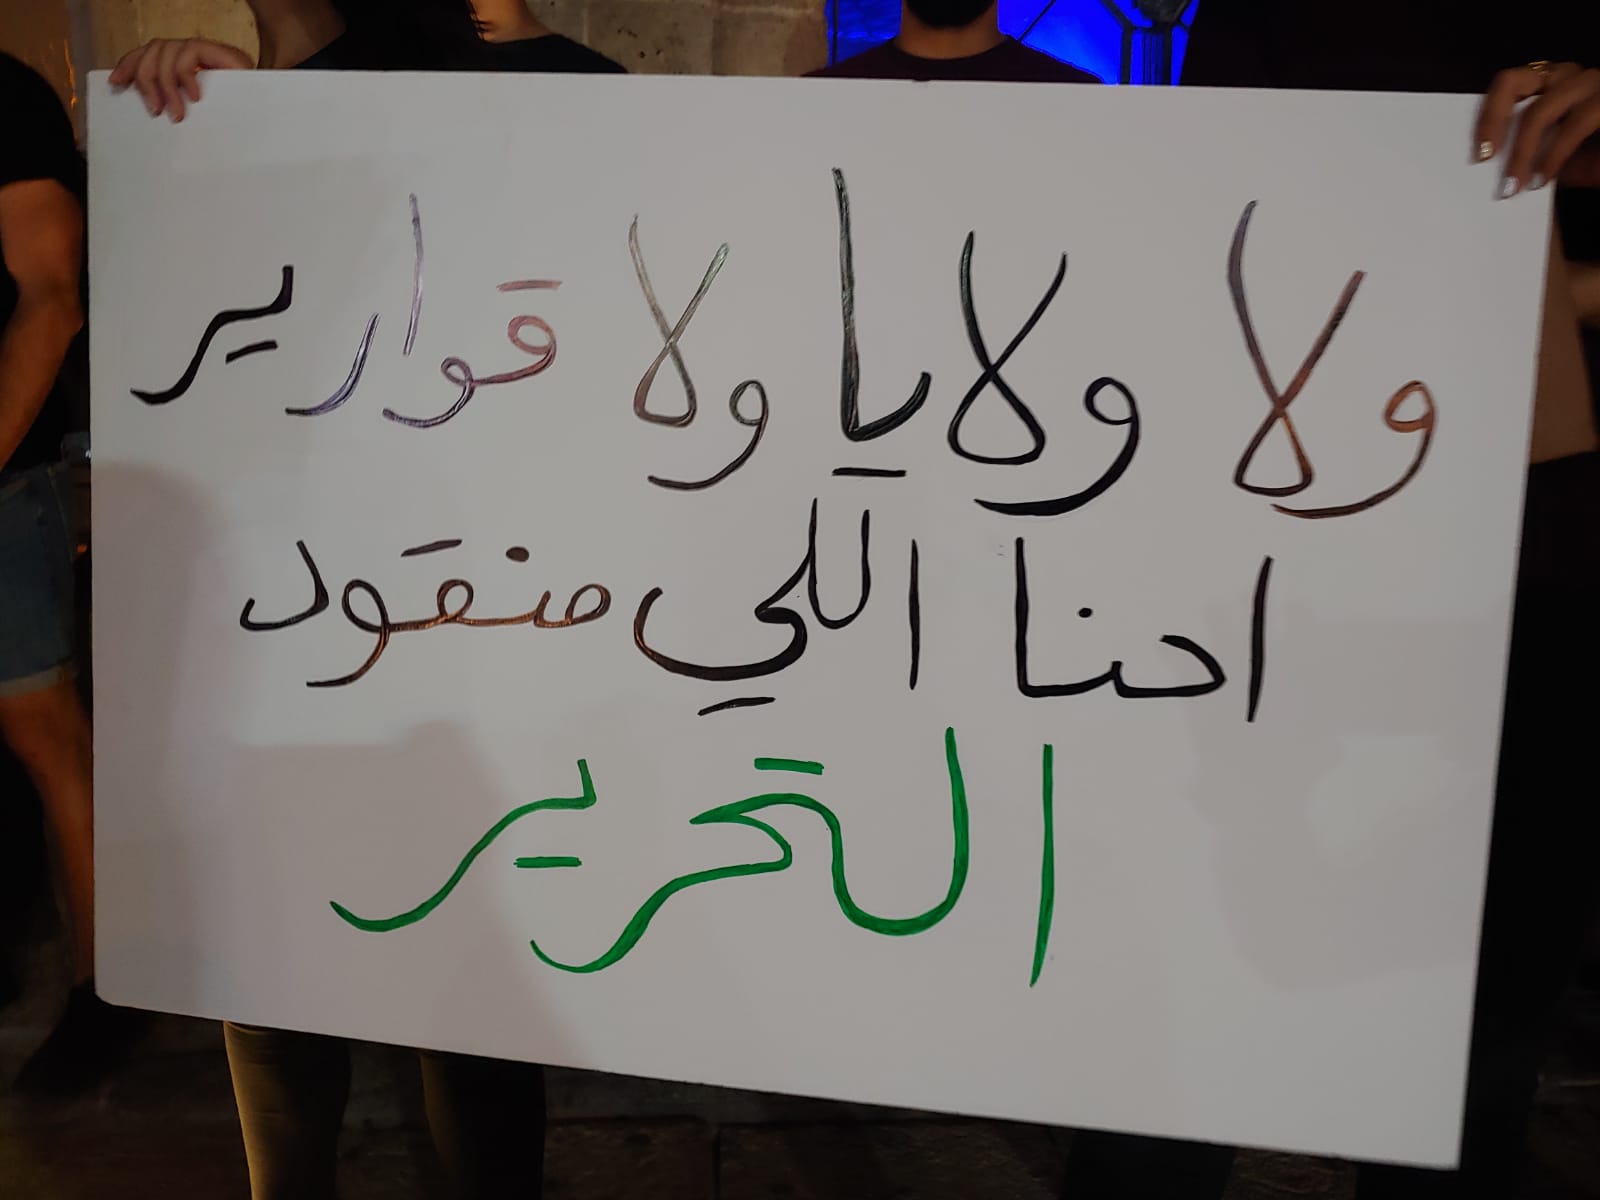 ولا ولايا ولا قوارير
احنا اللي منقود
التحرير